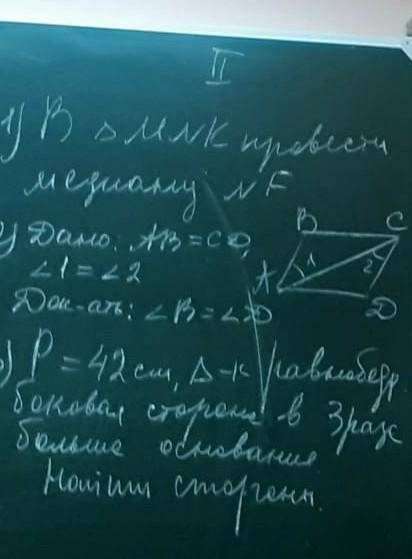 II
1) В △ MNK провести
медиану NF
2) Дано: AB = CD,
∠1 = ∠2
Док-ать: ∠B = ∠D
B C
A 1 2
D
3) P = 42 см, △-к равнобедр.
боковая сторона в 3 раза
больше основания
Найти стороны.